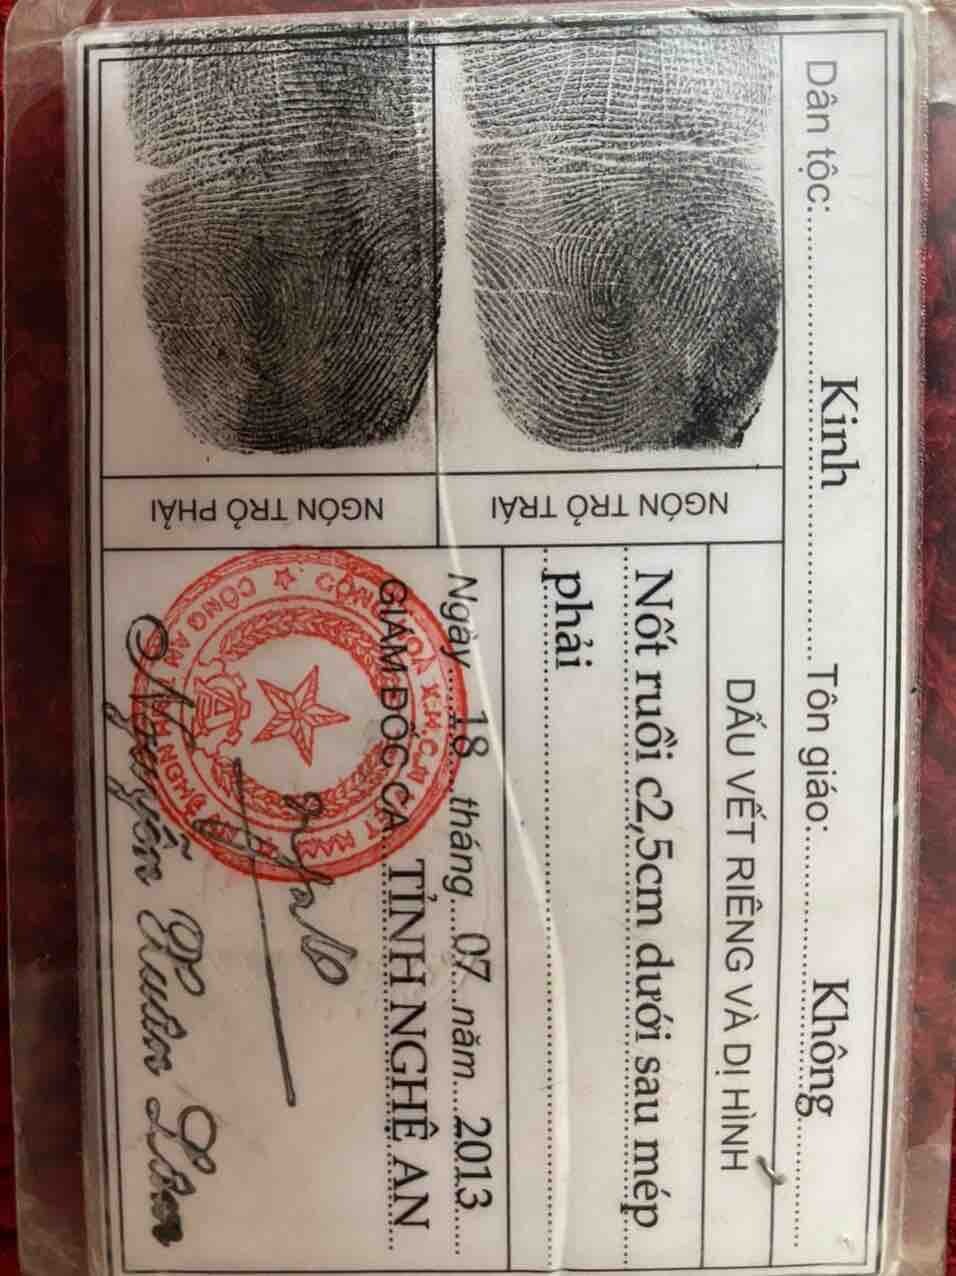 Dân tộc: Kinh Tôn giáo: Không
DẤU VẾT RIÊNG VÀ DỊ HÌNH
Nốt ruồi c2,5cm dưới sau mép
phải
NGÓN TRỎ TRÁI
NGÓN TRỎ PHẢI
Ngày 18 tháng 07 năm 2013
GIÁM ĐỐC CA TỈNH NGHỆ AN
CỘNG HÒA X.H.C.N VIỆT NAM
Nguyễn Xuân Lâm